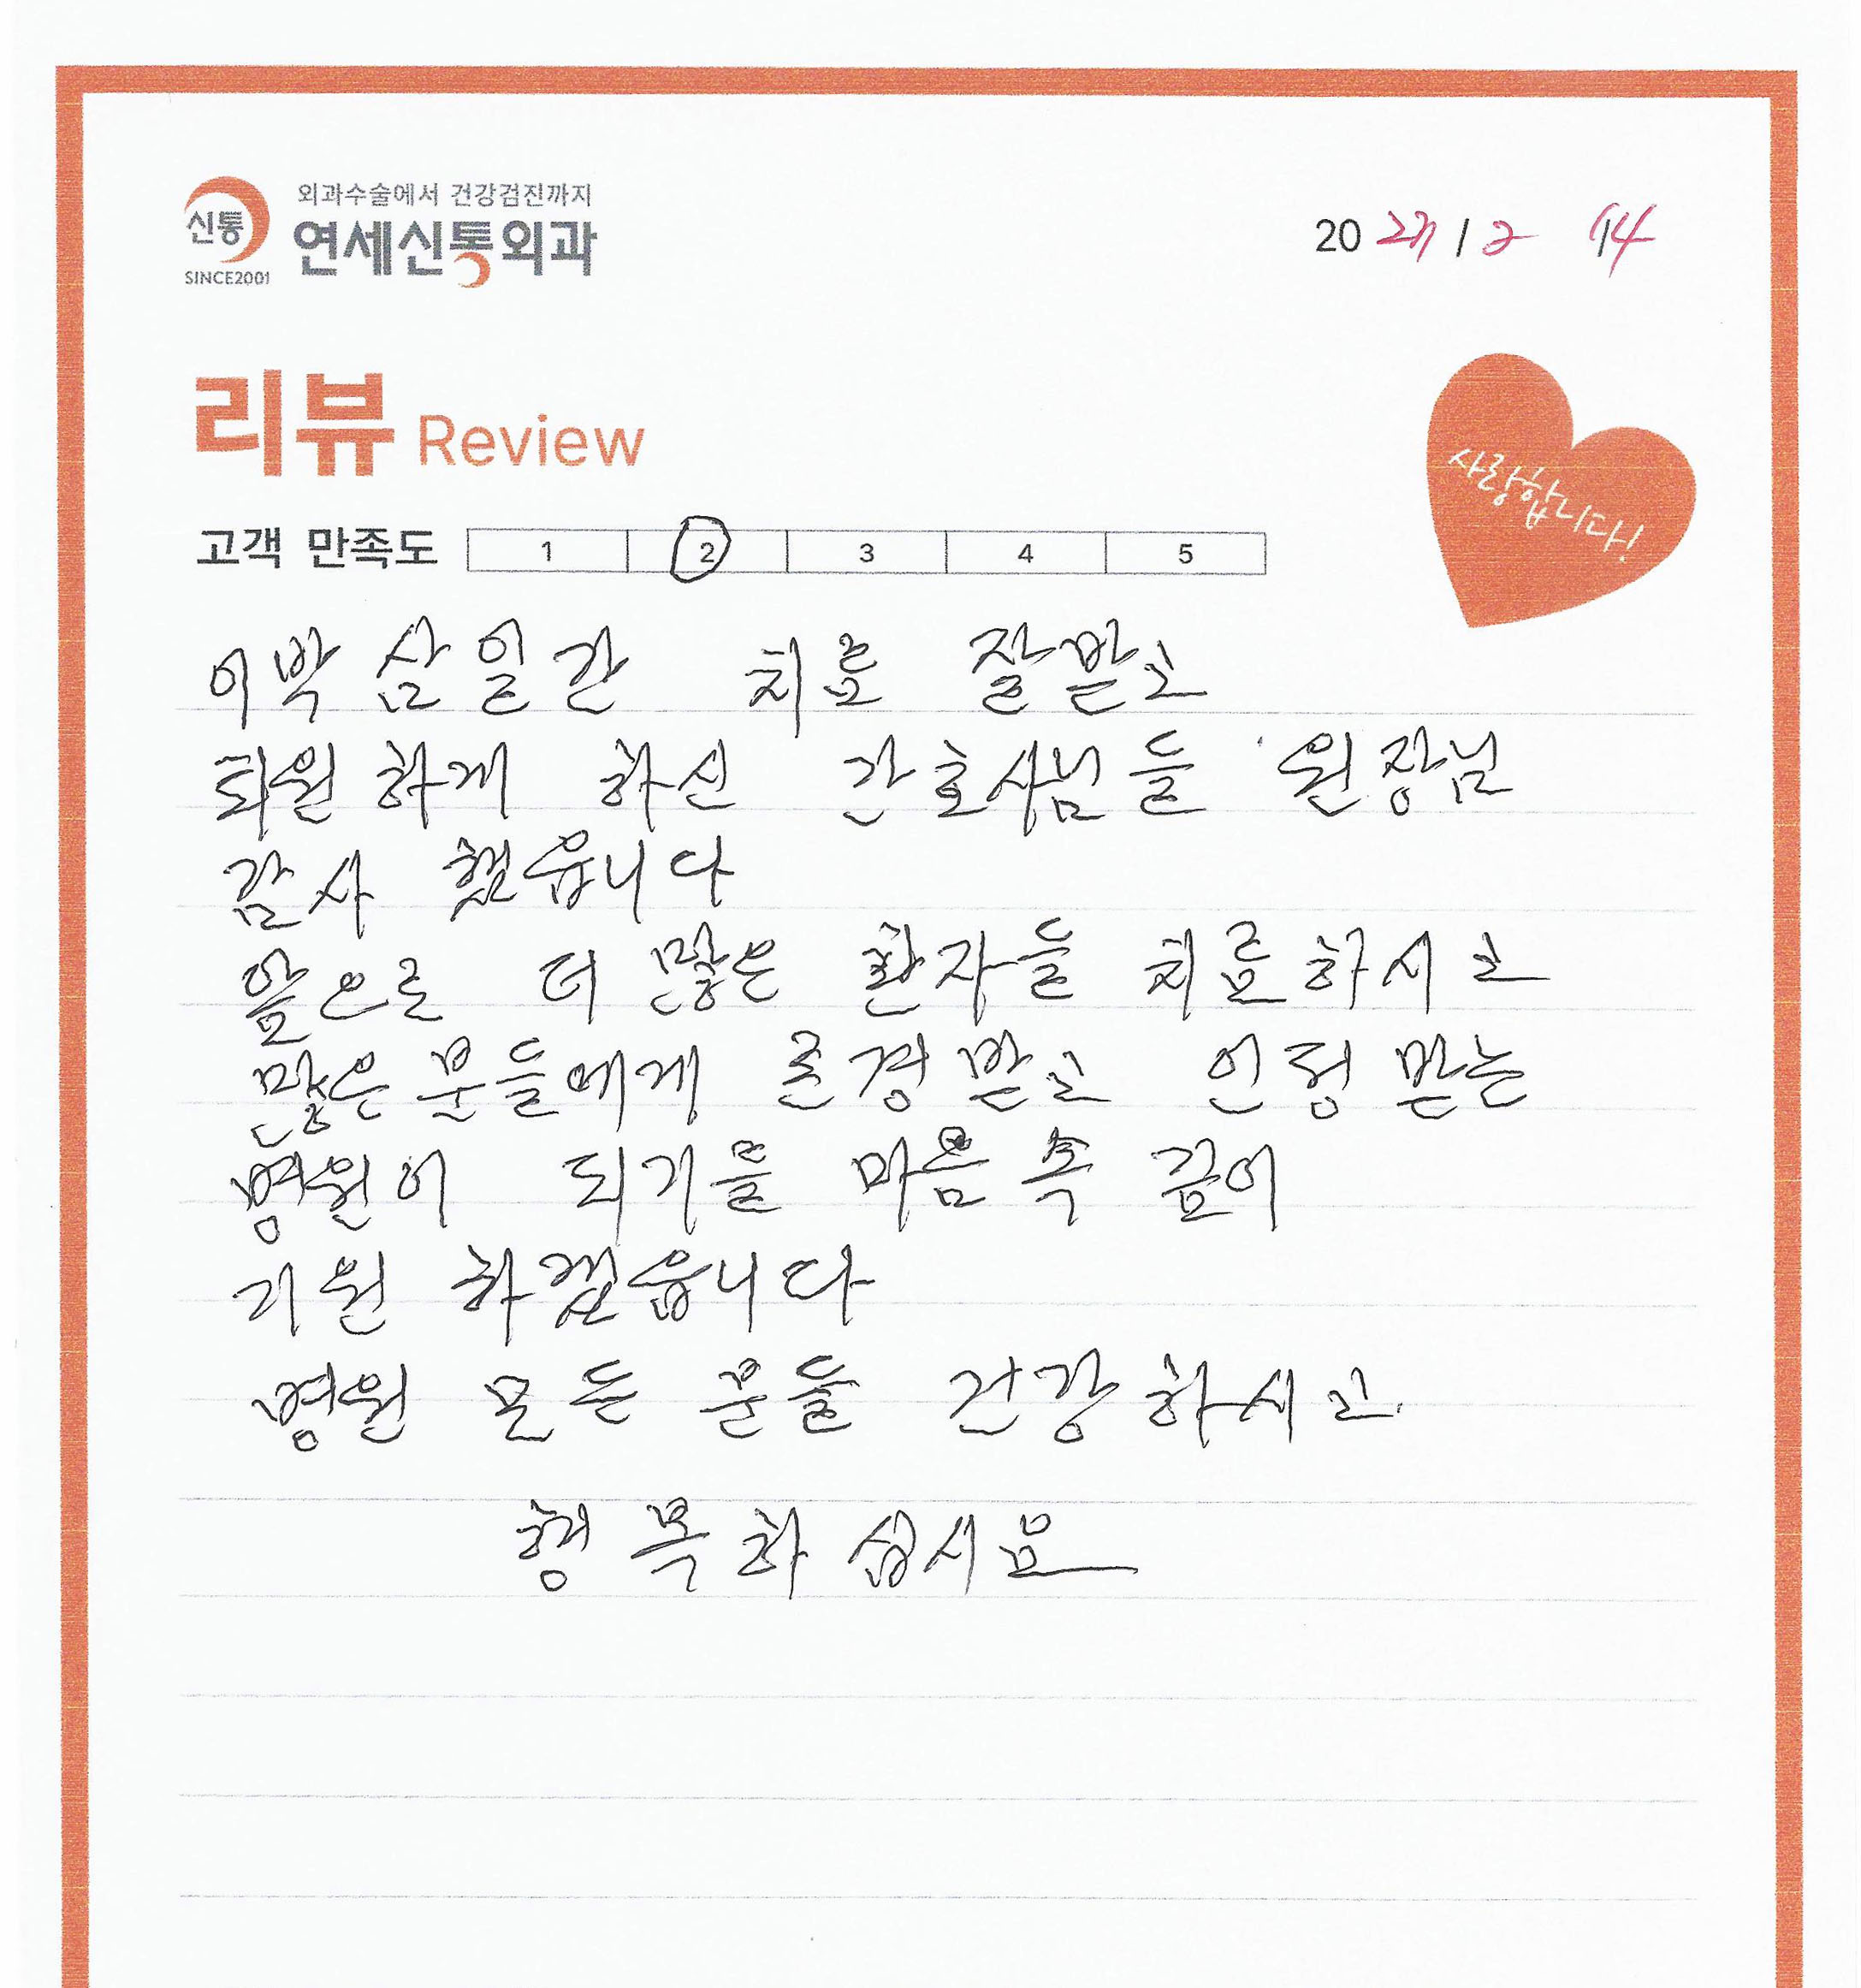 외과수술에서 건강검진까지
신통
연세신통외과
SINCE2001
20 / 2 14
리뷰 Review
사랑합니다!
고객 만족도 1 2 3 4 5
이박 삼일간 치료 잘받고
퇴원 하게 하신 간호사님들 원장님
감사 했읍니다
앞으로 더 많은 환자들 치료하시고
많은 분들에게 존경 받고 인정 받는
병원이 되기를 마음 속 깊이
기원 하겠읍니다
병원 모든 분들 건강하시고
행복하십시요